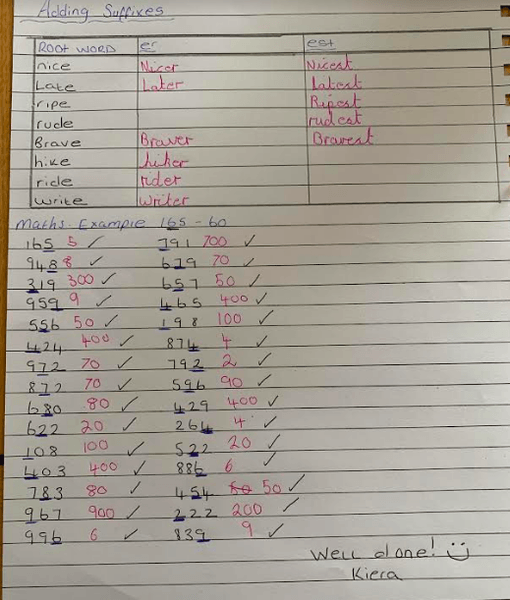 Adding Suffixes
ROOT WORD er est
nice Nicer Nicest
Late Later Latest
ripe Ripest
rude rudest
Brave Braver Bravest
hike hiker
ride rider
write writer
Maths Example 165 - 60
165 5 ✓ 791 700 ✓
948 8 ✓ 679 70 ✓
319 300 ✓ 657 50 ✓
959 9 ✓ 465 400 ✓
556 50 ✓ 198 100 ✓
424 400 ✓ 874 4 ✓
972 70 ✓ 792 2 ✓
872 70 ✓ 596 90 ✓
680 80 ✓ 429 400 ✓
622 20 ✓ 264 4 ✓
108 100 ✓ 522 20 ✓
403 400 ✓ 886 6 ✓
783 80 ✓ 454 50 ✓
967 900 ✓ 222 200 ✓
996 6 ✓ 839 9 ✓
Well done!
Kiera